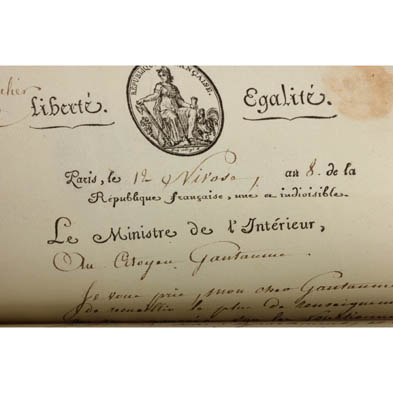 RÉPUBLIQUE FRANÇAISE.
Liberté. Egalité.
Paris, le 12 Nivose, an 8. de la
République française, une et indivisible.
Le Ministre de l'Intérieur,
Au Citoyen Gantaume.
Je vous prie, mon cher Gantaume
de recueillir le plus de renseignemen